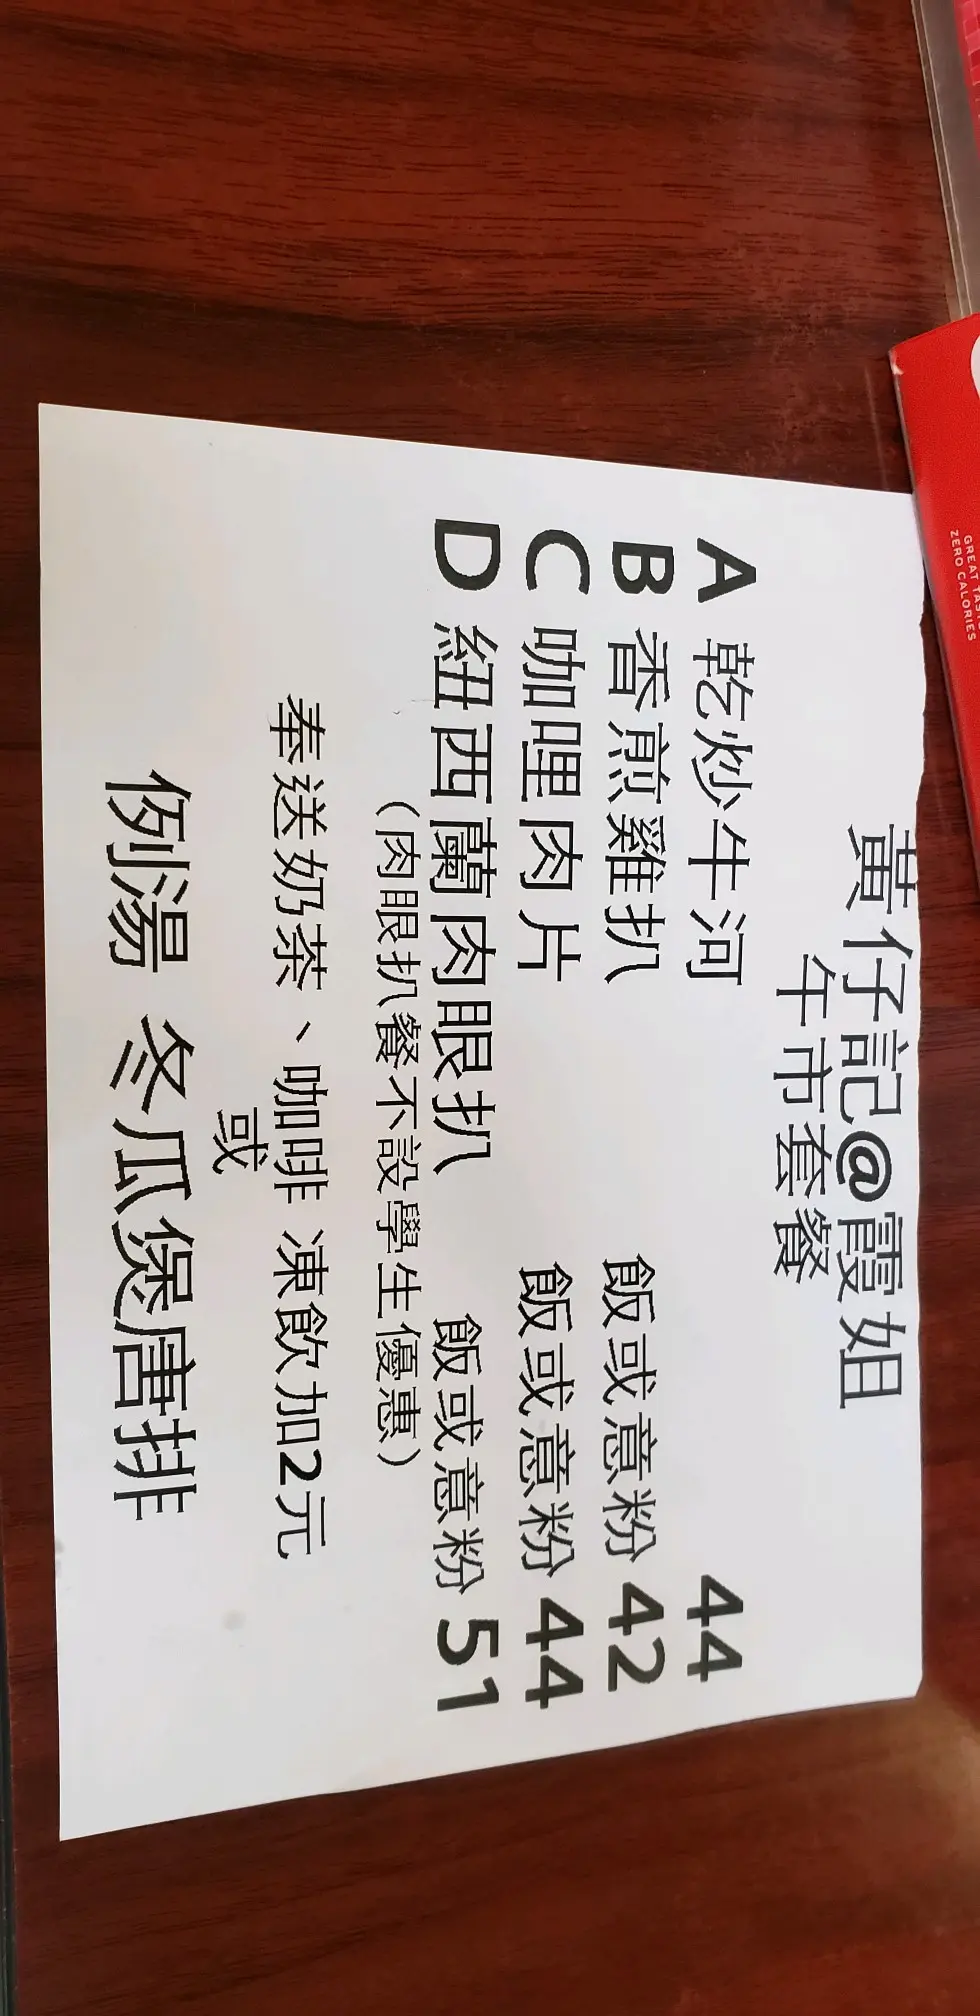 黃仔記@霞姐
午市套餐
A 乾炒牛河 44
B 香煎雞扒 飯或意粉 42
C 咖哩肉片 飯或意粉 44
D 紐西蘭肉眼扒 飯或意粉 51
（肉眼扒餐不設學生優惠）
奉送奶茶、咖啡 凍飲加2元
或
例湯 冬瓜煲唐排
GREAT TAS
ZERO CALORIES